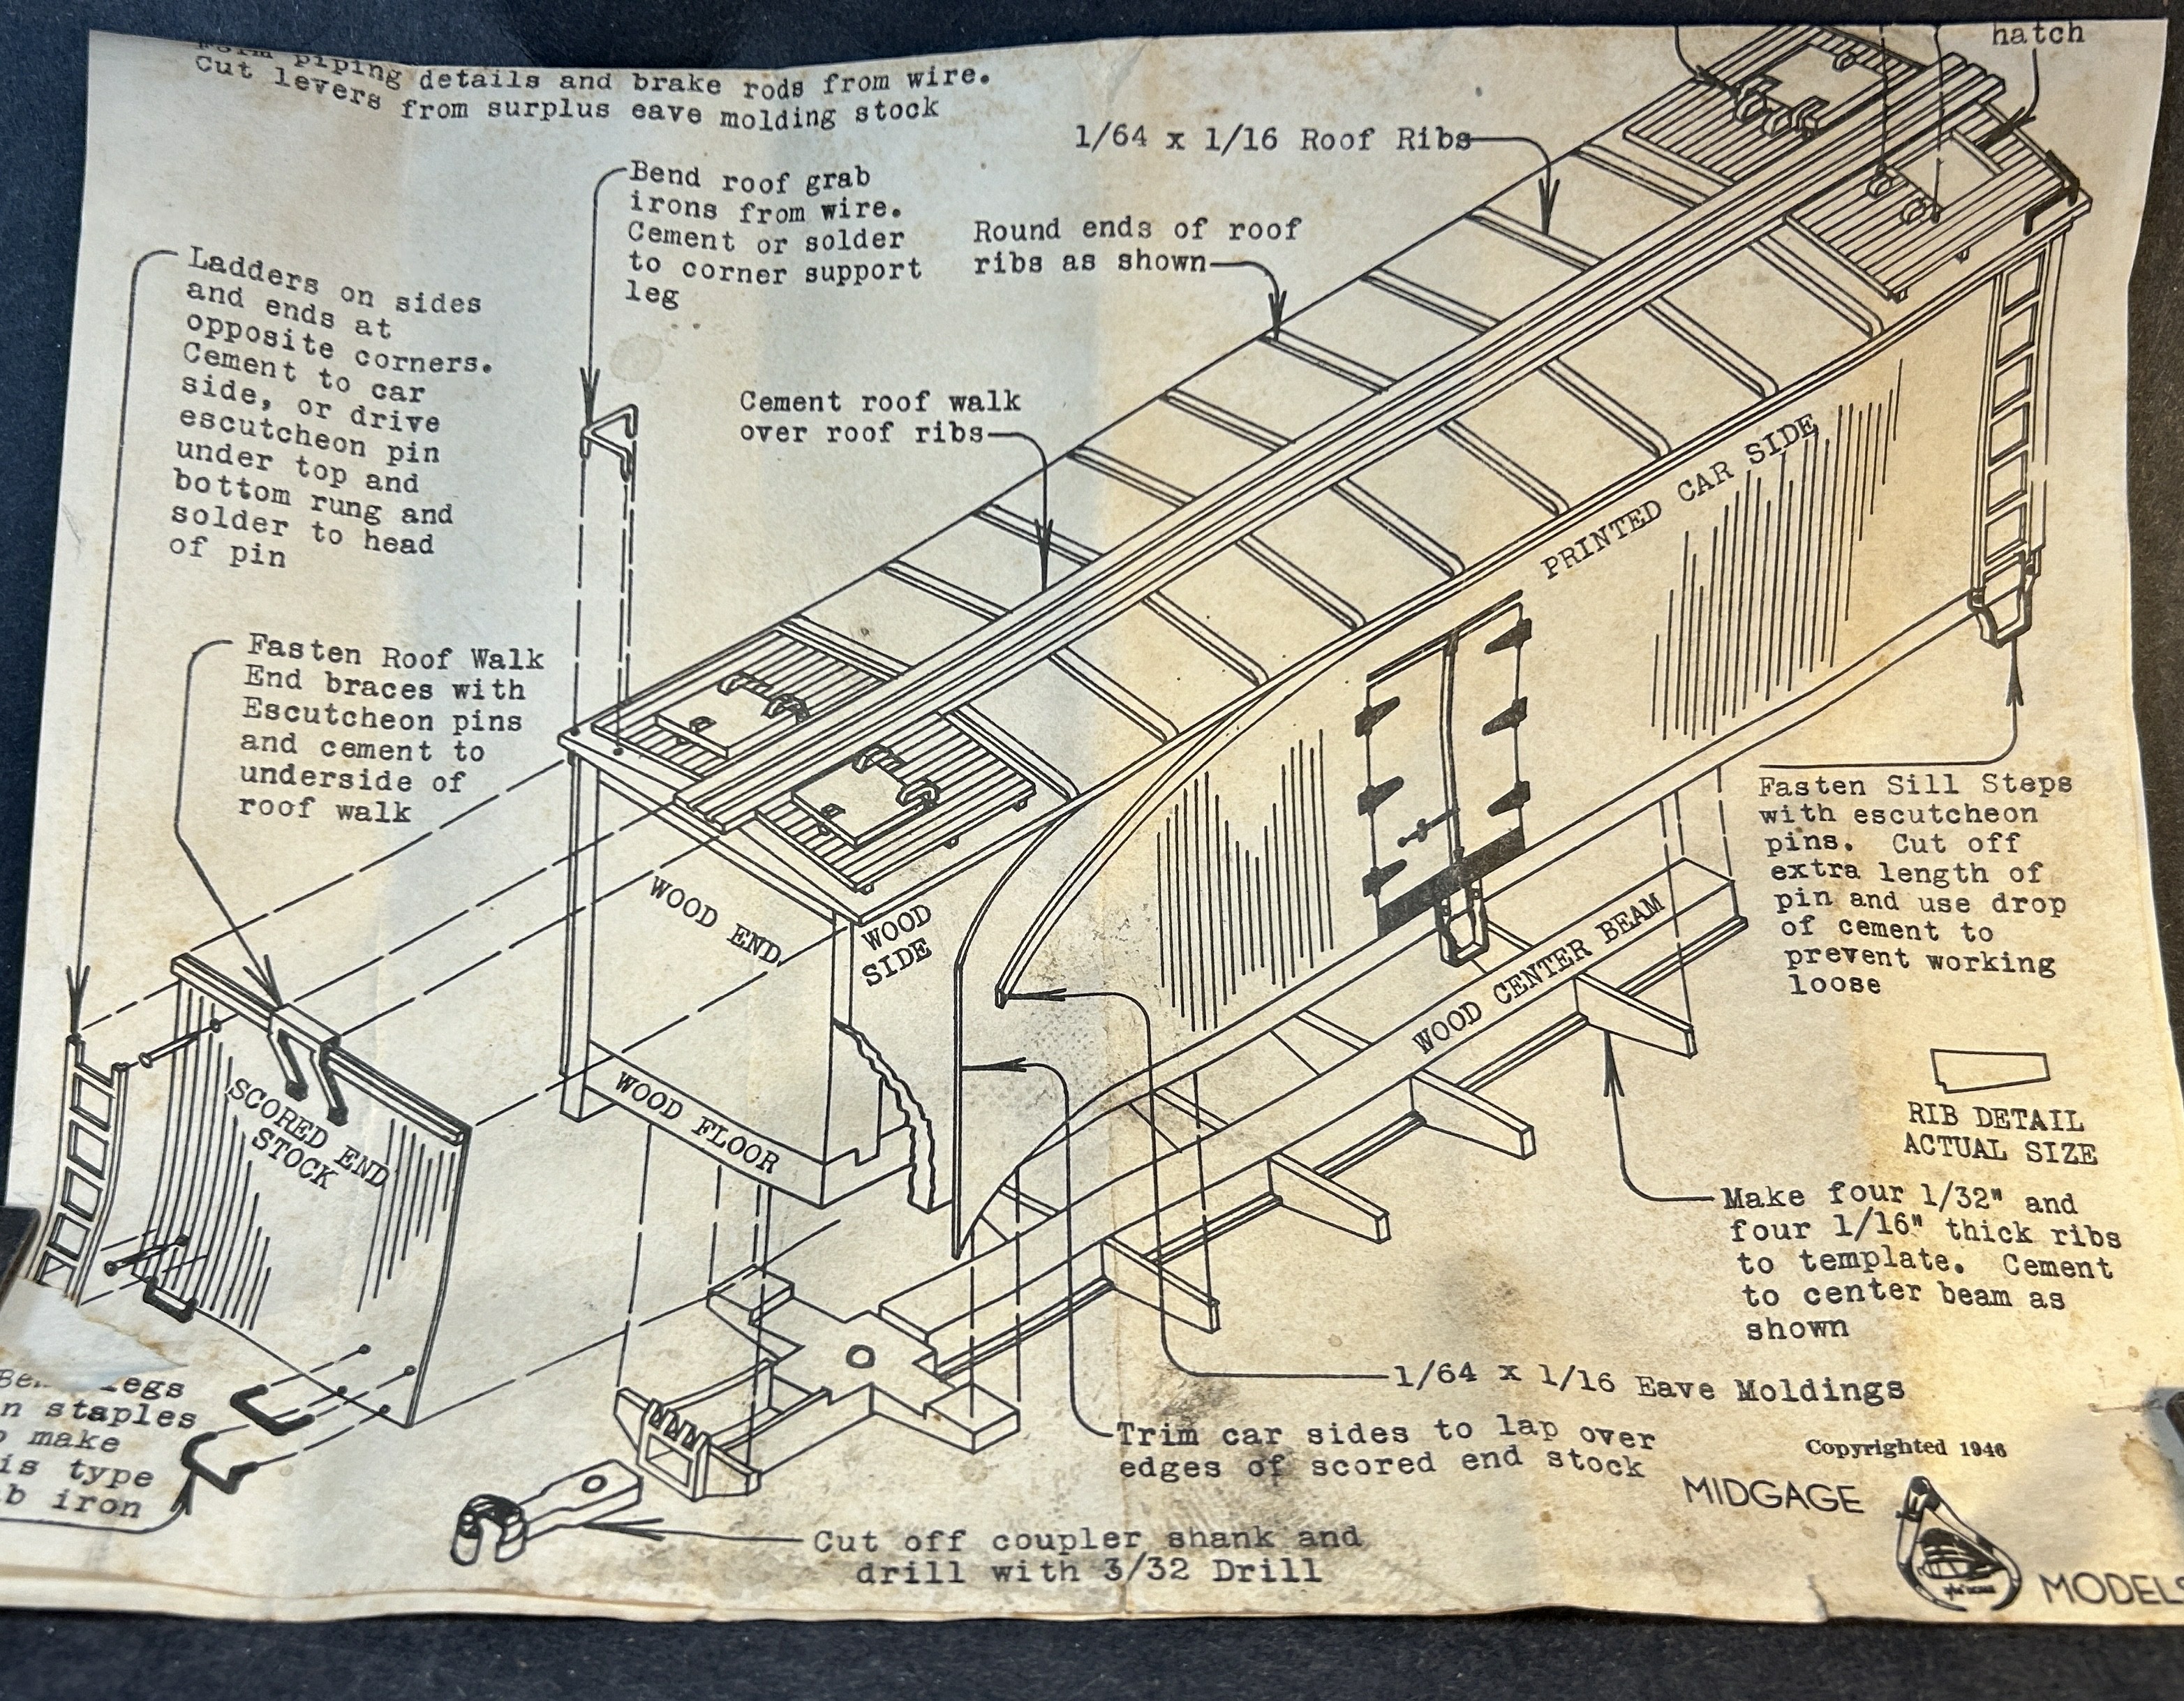 Form piping details and brake rods from wire.
Cut levers from surplus eave molding stock
hatch
1/64 x 1/16 Roof Ribs
Bend roof grab
irons from wire.
Cement or solder
to corner support
leg
Round ends of roof
ribs as shown
Ladders on sides
and ends at
opposite corners.
Cement to car
side, or drive
escutcheon pin
under top and
bottom rung and
solder to head
of pin
Cement roof walk
over roof ribs
PRINTED CAR SIDE
Fasten Roof Walk
End braces with
Escutcheon pins
and cement to
underside of
roof walk
Fasten Sill Steps
with escutcheon
pins. Cut off
extra length of
pin and use drop
of cement to
prevent working
loose
WOOD END
WOOD
SIDE
WOOD CENTER BEAM
WOOD FLOOR
SCORED END
STOCK
RIB DETAIL
ACTUAL SIZE
Make four 1/32" and
four 1/16" thick ribs
to template. Cement
to center beam as
shown
1/64 x 1/16 Eave Moldings
Trim car sides to lap over
edges of scored end stock
egs
n staples
make
is type
b iron
Cut off coupler shank and
drill with 3/32 Drill
Copyrighted 1946
MIDGAGE
MODELS